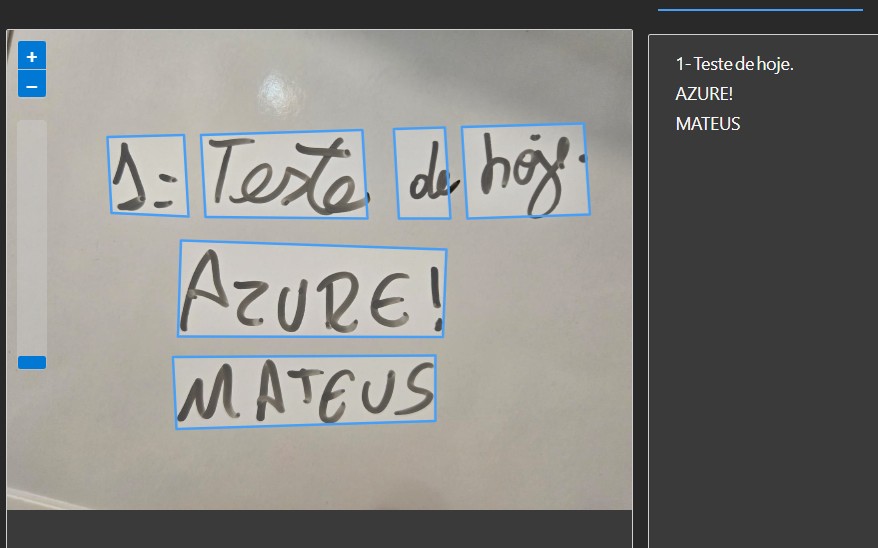 +
–
1= Teste de hoje.
AZURE!
MATEUS
1- Teste de hoje.
AZURE!
MATEUS